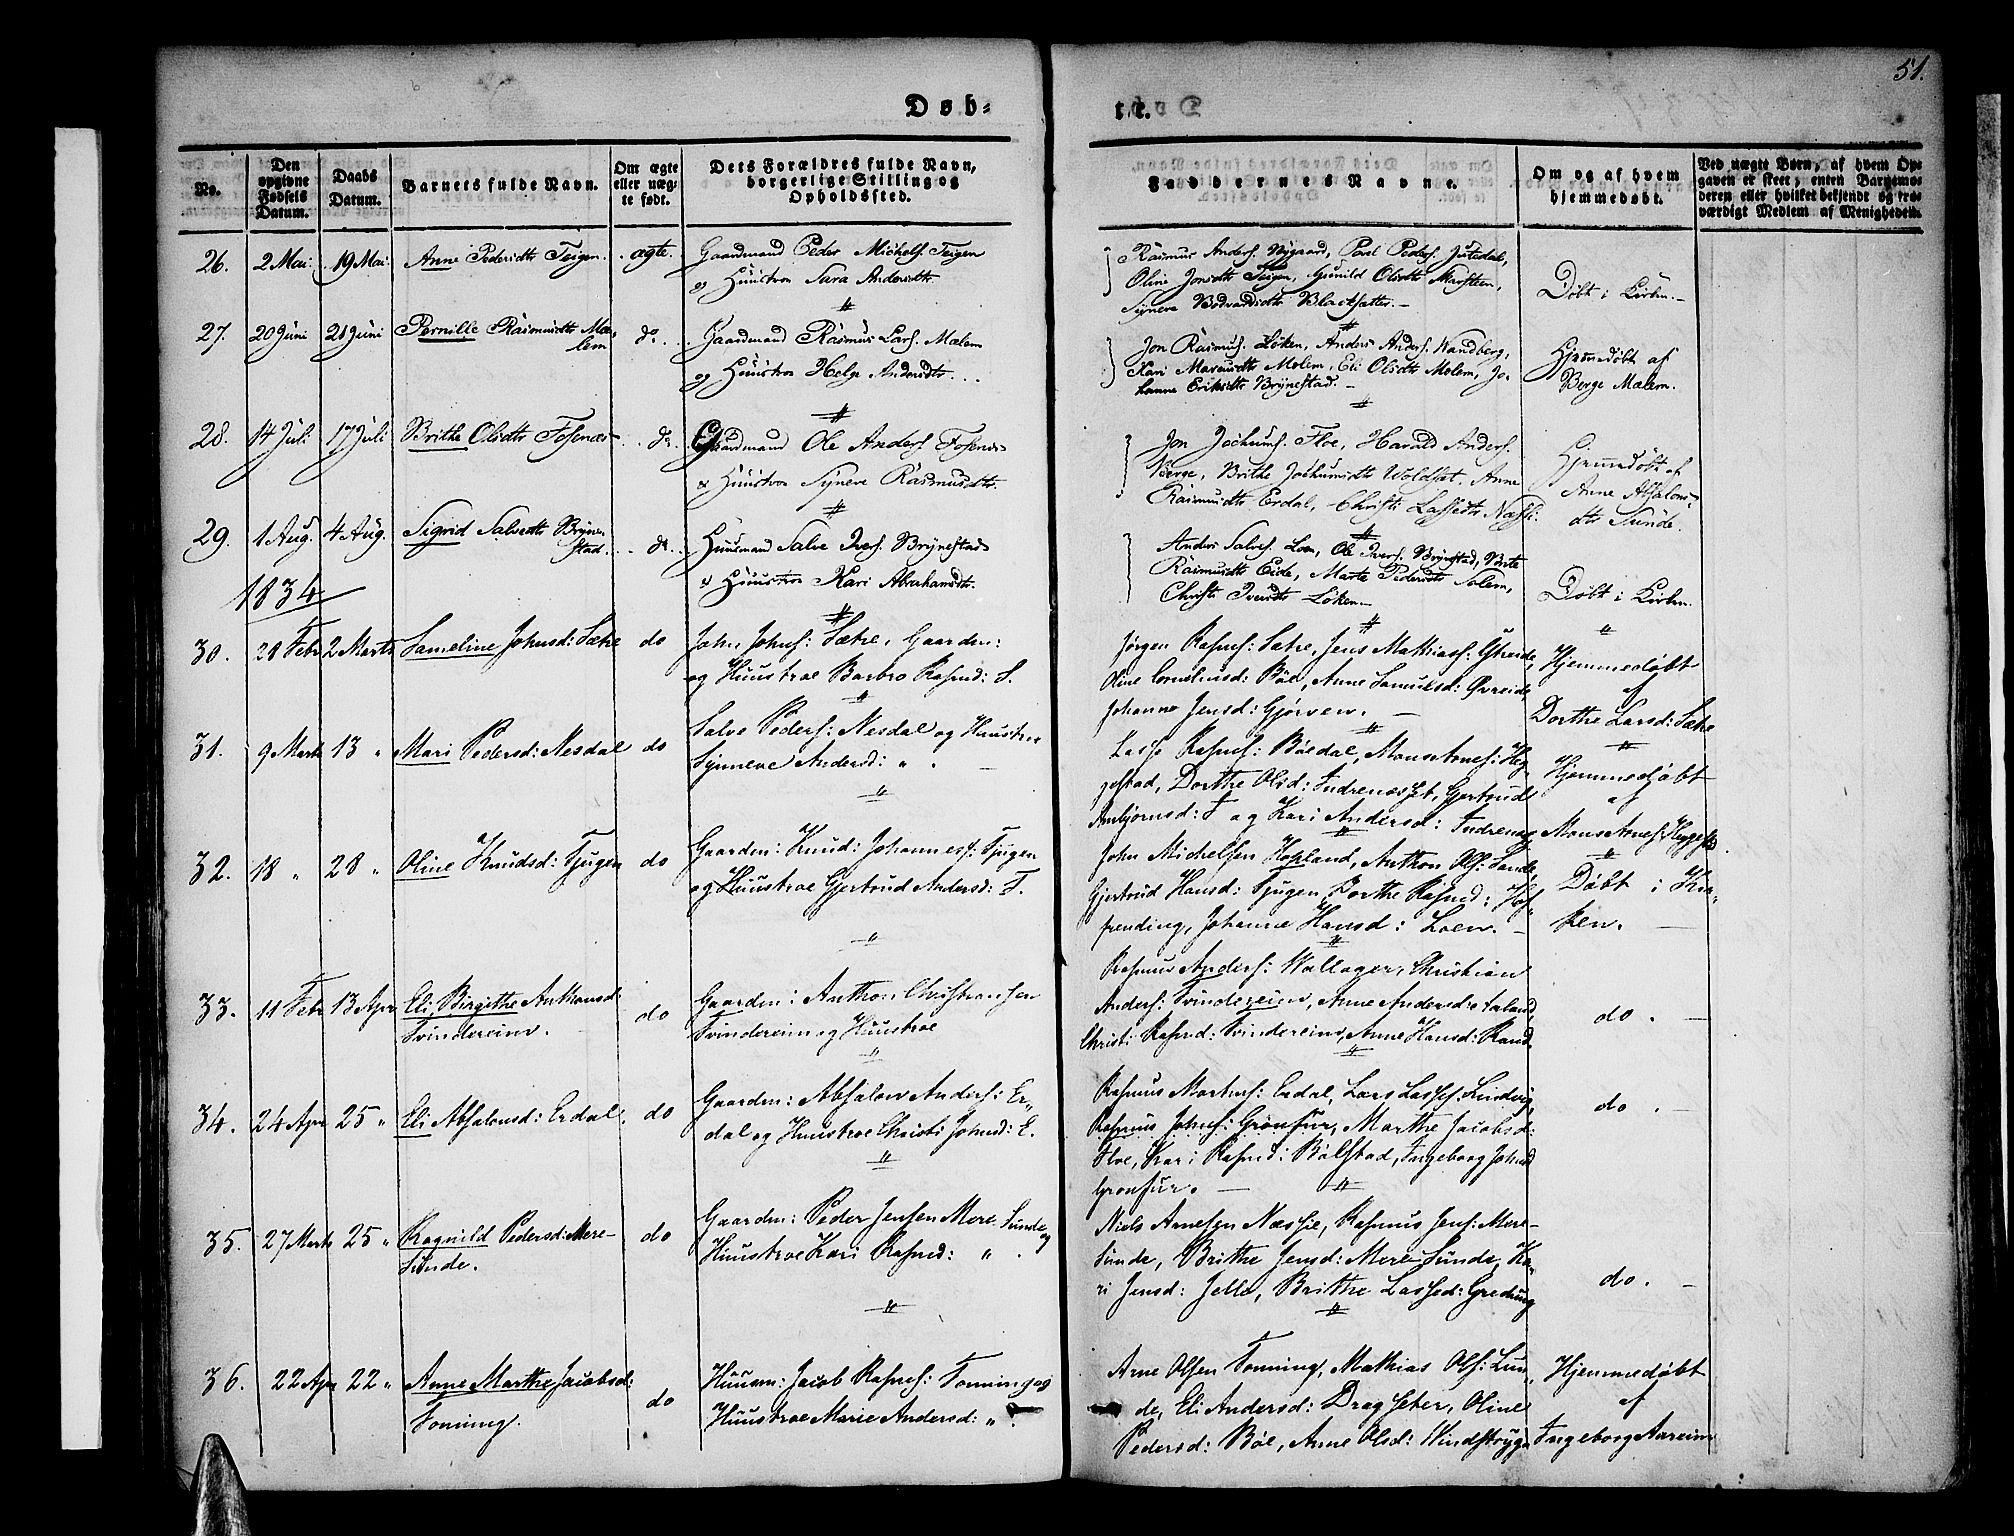 51.
Døb-
te.
No.
Den
opgivne
Fødsels
Datum.
Daabs
Datum.
Barnets fulde Navn.
Om ægte
eller uæg-
te født.
Dets Forældres fulde Navn,
borgerlige Stilling og
Opholdssted.
Faddernes Navne.
Om og af hvem
hjemmedøbt.
Ved uægte Børn, af hvem Op-
gaven er skeet, enten Barnemo-
deren eller hvilket bekjendt og tro-
værdigt Medlem af Menigheden.
26. 2 Mai. 19 Mai. Anne Pedersdtr Teigen. ægte.
Gaardmand Peder Michels. Teigen
og Huustroe Sara Andersdtr.
Rasmus Anders. Nygaard, Poul Peders. Jutedal,
Oline Jonsdtr Teigen, Gunild Olsdtr Marsteen,
Syneve Bodvardsdtr Blacksætter.
Døbt i Kirken.
27. 20 Juni 21 Juni Pernille Rasmusdtr Mæ-
lem do.
Gaardmand Rasmus Lars. Mælem
og Huustroe Helge Andersdtr.
Jon Rasmus. Løken, Anders Anders. Wandberg,
Kari Marcusdtr Molem, Eli Olsdtr Molem, Jo-
hanne Eriksdtr Brynestad.
Hjemmedøbt af
Berge Mælem.
28. 14 Juli 17 Juli Brithe Olsdtr Fosenæs do.
Gaardmand Ole Anders. Fosenæs
& Huustroe Syneve Rasmusdtr.
Jon Jochums. Floe, Harald Anders.
Berge, Brithe Jochumsdtr Woldset, Anne
Rasmusdtr Erdal, Christi Lassedtr Næsse.
Hjemmedøbt af
Anne Absalons-
dtr Sunde.
29. 1 Aug. 4 Aug. Sigrid Salvesdtr Bryne-
stad. do.
Huusmand Salve Ivers. Brynestad
& Huustroe Kari Abrahamsdtr.
Anders Salves. Loen, Ole Ivers. Brynestad, Brite
Rasmusdtr Eide, Marte Pedersdtr Solem,
Christi Iversdtr Løken.
Døbt i Kirken.
1834
30. 28 Febr 2 Marts Sameline Johnsd: Sætre do
John Johns: Sætre, Gaarden:
og Huustroe Barbro Rasmd: S.
Jørgen Rasmus: Sætre, Jens Mathias: Ytreide,
Oline Cornelius: Bøe, Anne Samuelsd: Øvreide,
Johanne Jensd: Gjørven.
Hjemmedøbt
af
Dorthe Larsd: Sætre
31. 9 Marts 13 " Mari Pedersd: Nesdal do
Salve Peders: Nesdal og Huustroe
Synneve Andersd: "
Lasse Rasm: Bøedal, Mons Arnes: Heg-
gestad, Dorthe Olsd: Indrenæsset, Gjertrud
Anbjørnsd: I og Kari Andersd: Indrenæs
Hjemmedøbt
af
Mons Arnes: Heggestad.
32. 18 " 28 " Oline Knudsd: Tjugen do
Gaarden: Knud: Johannes: Tjugen
og Huustroe Gjertrud Andersd: T.
John Michelsen Hopland, Anthon Ols: Sande,
Gjertrud Hansd: Tjugen, Dorthe Rasmd: Hof-
pending, Johanne Hansd: Loen.
Døbt i Kir-
ken.
33. 11 Febr 13 Apr Eli Birgithe Anthonsd:
Tvindereim. do
Gaarden: Anthon Christiansen
Tvindereim og Huustroe
Rasmus Anders: Wollager, Christian
Anders: Tvindereim, Anne Andersd: Aaland,
Christi Rasmd: Tvindereim, Anne Hansd: Rand.
do.
34. 24 Apr 25 " Eli Absalonsd: Erdal. do
Gaarden: Absalon Anders: Er-
dal og Huustroe Christi Johnsd: E.
Rasmus Martin: Erdal, Lars Lasses: Lindvig,
Rasmus Johns: Grønfur, Marthe Jacobsd:
Floe, Kari Rasmd: Bølstad, Ingeborg Johnsd
Grønfur.
do.
35. 27 Marts 25 " Ragnild Pedersd: Mere-
Sunde. do
Gaarden: Peder Jensen Mere-Sunde
og
Huustroe Kari Rasmd: "
Niels Arnesen Næsse, Rasmus Jens: Mere-
Sunde, Brithe Jensd: Mere-Sunde, Ka-
ri Jensd: Jelle, Brithe Lassed: Gredung
do.
36. 22 Apr 22 " Anne Marthe Jacobsd:
Tonning. do
Huusm: Jacob Rasmus: Tonning og
Huustroe Marie Andersd: "
Arne Olsen Tonning, Mathias Ols: Lun-
de, Eli Andersd: Dragseter, Oline
Pedersd: Bøe, Anne Olsd: Windstryge
Hjemmedøbt
af
Ingeborg Aareim